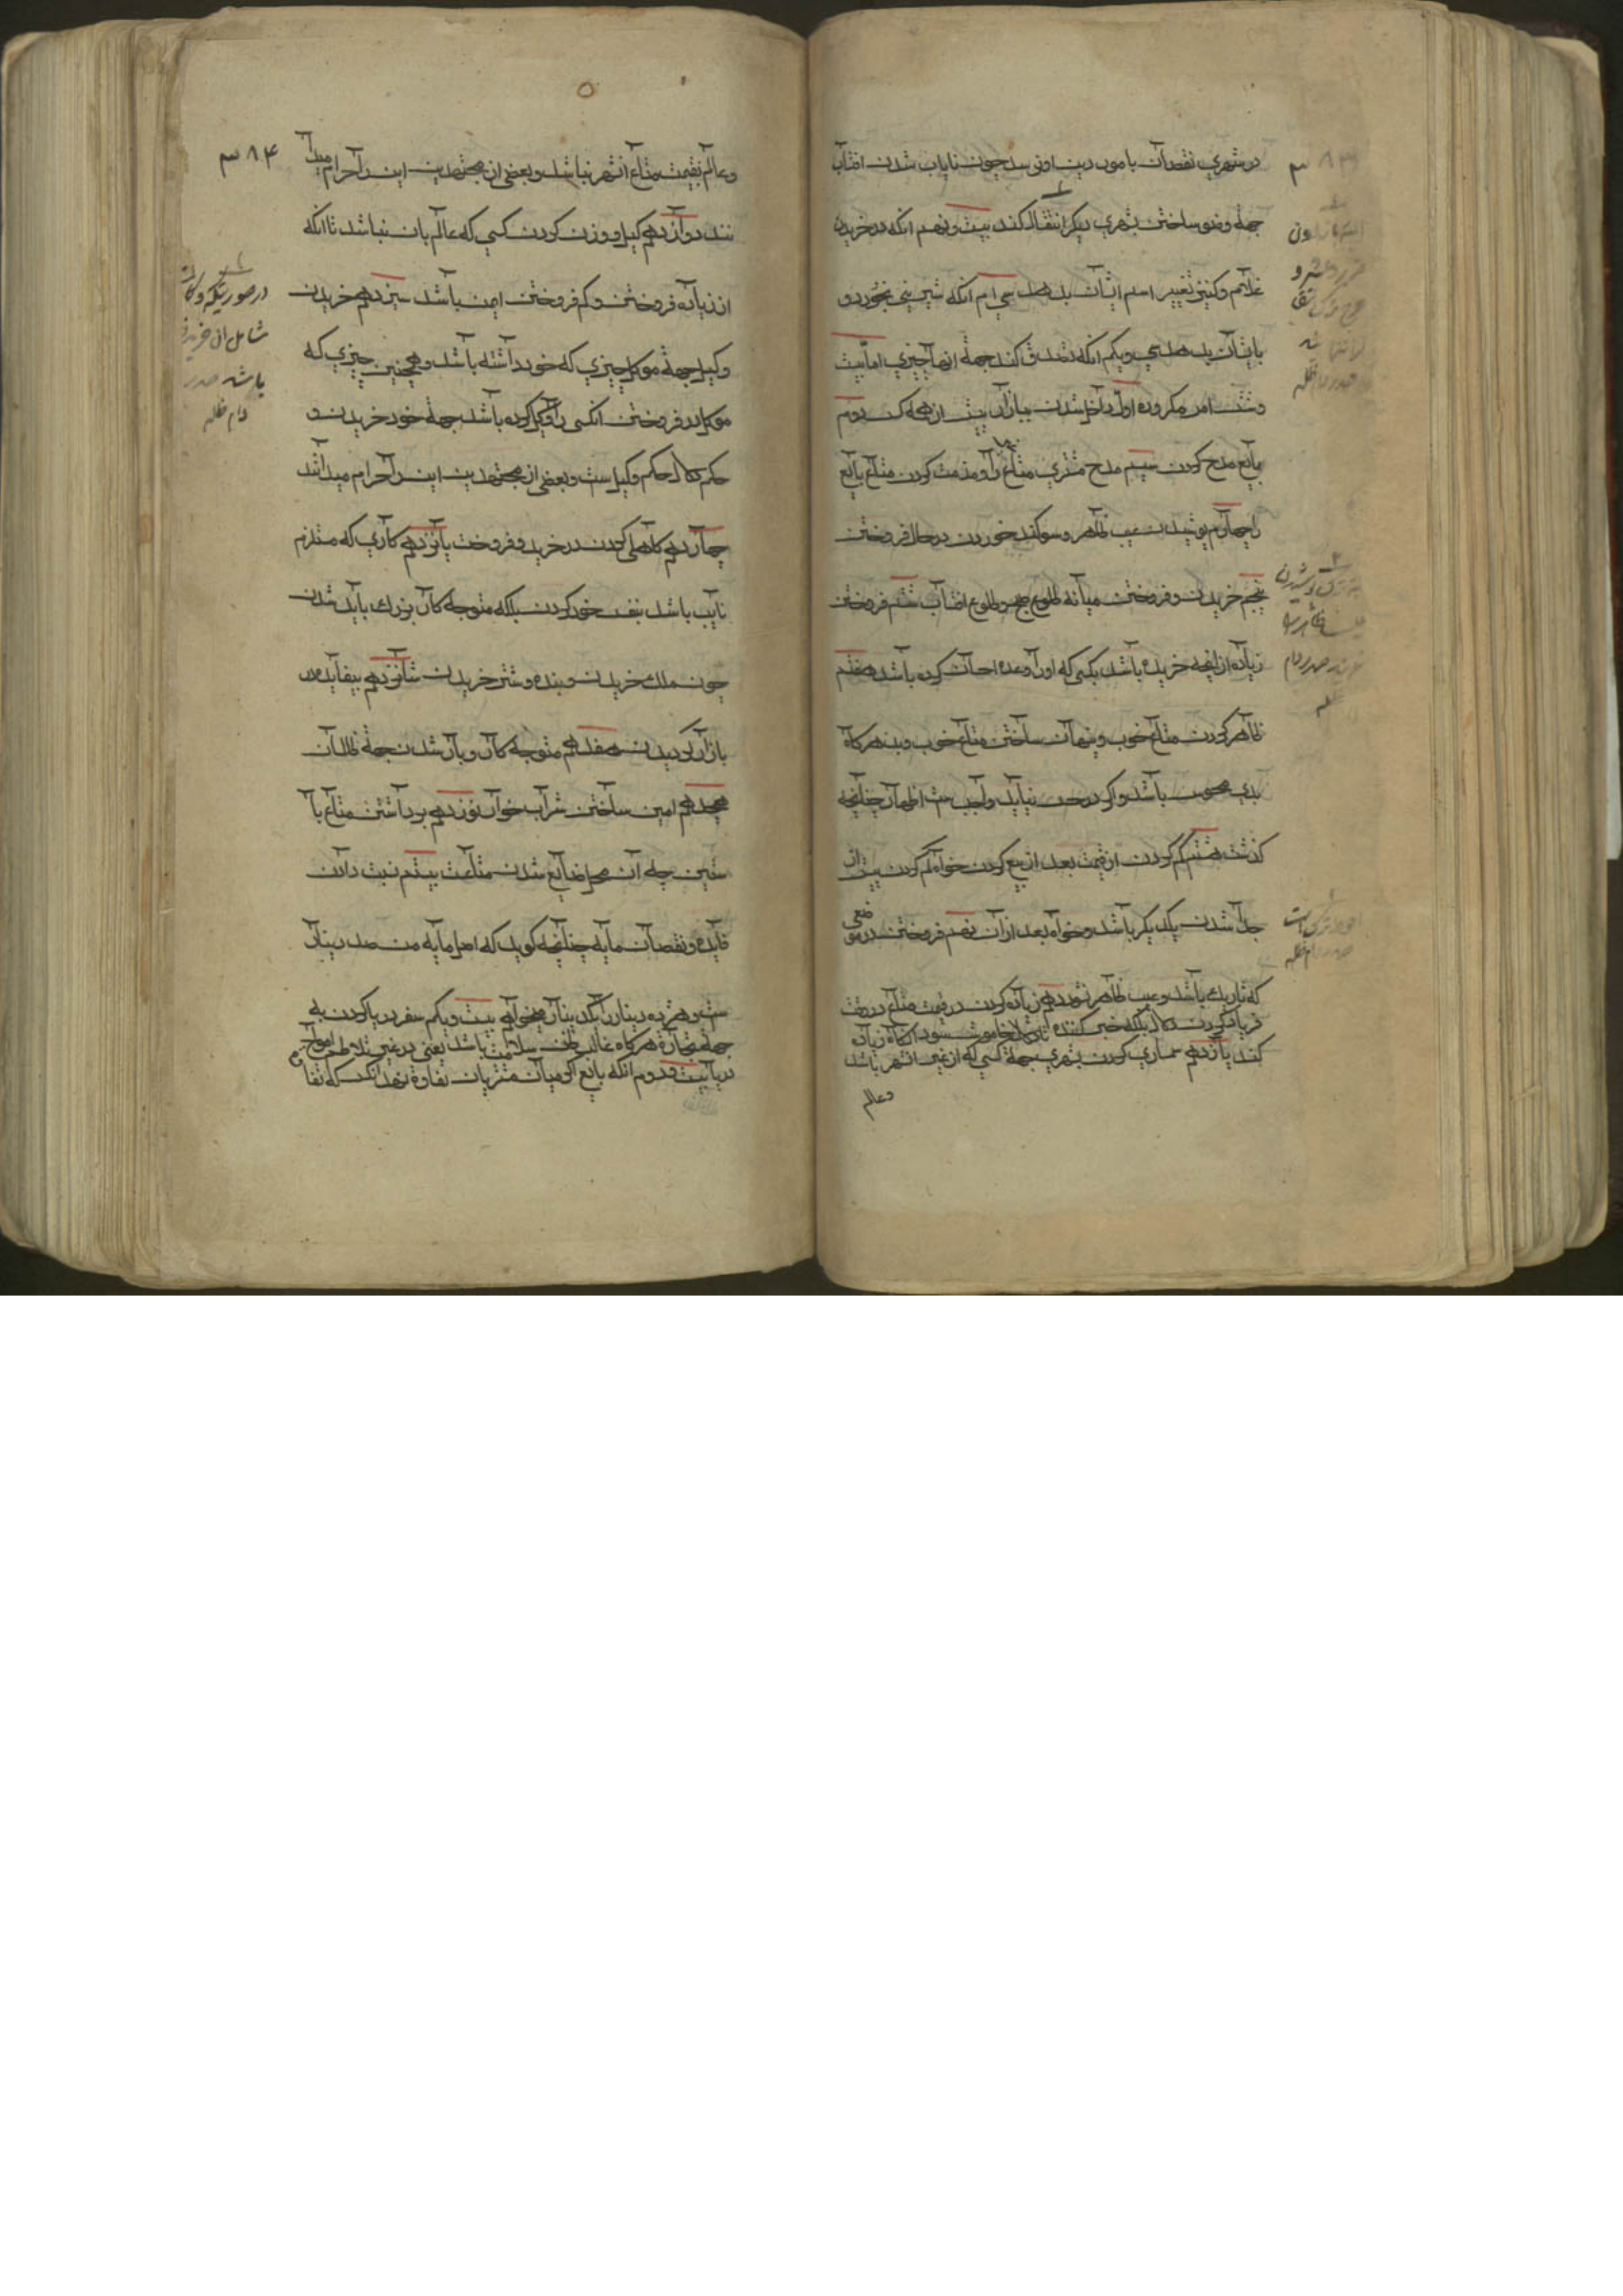 در شهری نقصان بامور دین او نرسد چون نایاب شدن افتاب
جهة وضو ساختن بشهری دیکر انتقال کند بیست و نهم انکه در خریدن
غلام و کنیز تغییر اسم ایشان بدهد سی ام انکه شیرینی بخورد و
بایشان بدهد سی و یکم انکه تصدق کند جهة انها چیزی اما بیست
و شش امر مکروه اول داخل شدن ببازار پیش از همه کس دوم
بایع مدح کردن سیم مدح مشتری متاع را و مذمت کردن متاع بایع
را چهارم پوشیدن عیب ظاهر و سوکند خوردن در حال فروختن
پنجم خریدن و فروختن میانه طلوع صبح و طلوع افتاب ششم فروختن
زیاده از انچه خریده باشد بکسی که او را وعده احسان کرده باشد هفتم
ظاهر کردن متاع خوب و پنهان ساختن متاع خوب و بد هرکاه
بدی محسوس باشد و اکر در حس نیاید واجب ست اظهار چنانچه
کذشت هشتم کم کردن از قیمت بعد از بیع کردن خواه کم کردن پیش از
جدا شدن یکدیکر باشد و خواه بعد از ان نهم فروختن در موضعی
که تاریک باشد و عیب ظاهر نشود دهم زیاده کردن در قیمت متاع در وقت
فریاد کردن دلال بلکه خبر کننده تا دلال خاموش شود انکاه زیاده
کند یازدهم سمساری کردن بشهری جهة کسی که از غیر انشهر باشد
وعالم
۳۸۴
وعالم بقیمت متاع انشهر نباشد و بعضی از مجتهدین این را حرام میدا
نند دوازدهم کیل و وزن کردن کسی که عالم بان نباشد تا انکه
از زیاده فروختن و کم فروختن ایمن باشد سیزدهم خریدن
وکیل جهة موکل چیزی که خود داشته باشد و همچنین چیزی که
موکل در فروختن انکس را وکیل کرده باشد جهة خود خریدن و
حکم دلال حکم وکیل ست و بعضی از مجتهدین این را حرام میدانند
چهاردهم کاهلی کردن در خرید و فروخت پانزدهم کاری که مستلزم
نایب باشد بنفس خود کردن بلکه متوجه کار بزرک باید شدن
چون ملک خریدن و بنده و شتر خریدن شانزدهم بیفایده در
بازار کردیدن هفدهم متوجه کار و بار شدن جهة ظالمان
هجدهم امین ساختن شراب خوار نوزدهم برداشتن متاع با
سنین چه ان محل ضایع شدن متاعت بیستم نسبت دادن
فایده و نقصان مایه چنانچه کوید که اصل مایه من صد دینار
ست و هر ده دینار را یکدینار میخواهم بیست و یکم سفر دریا کردن به
جهة تجارة هرکاه غالب ظن سلامت باشد یعنی در غیر تلاطم امواج
دریا بیست و دوم انکه بایع اکر میان مشتریان تفاوة نهد انکس که تفا
در صورتیکه وکالت
شامل ان خرید
باشد صدر
دام ظله